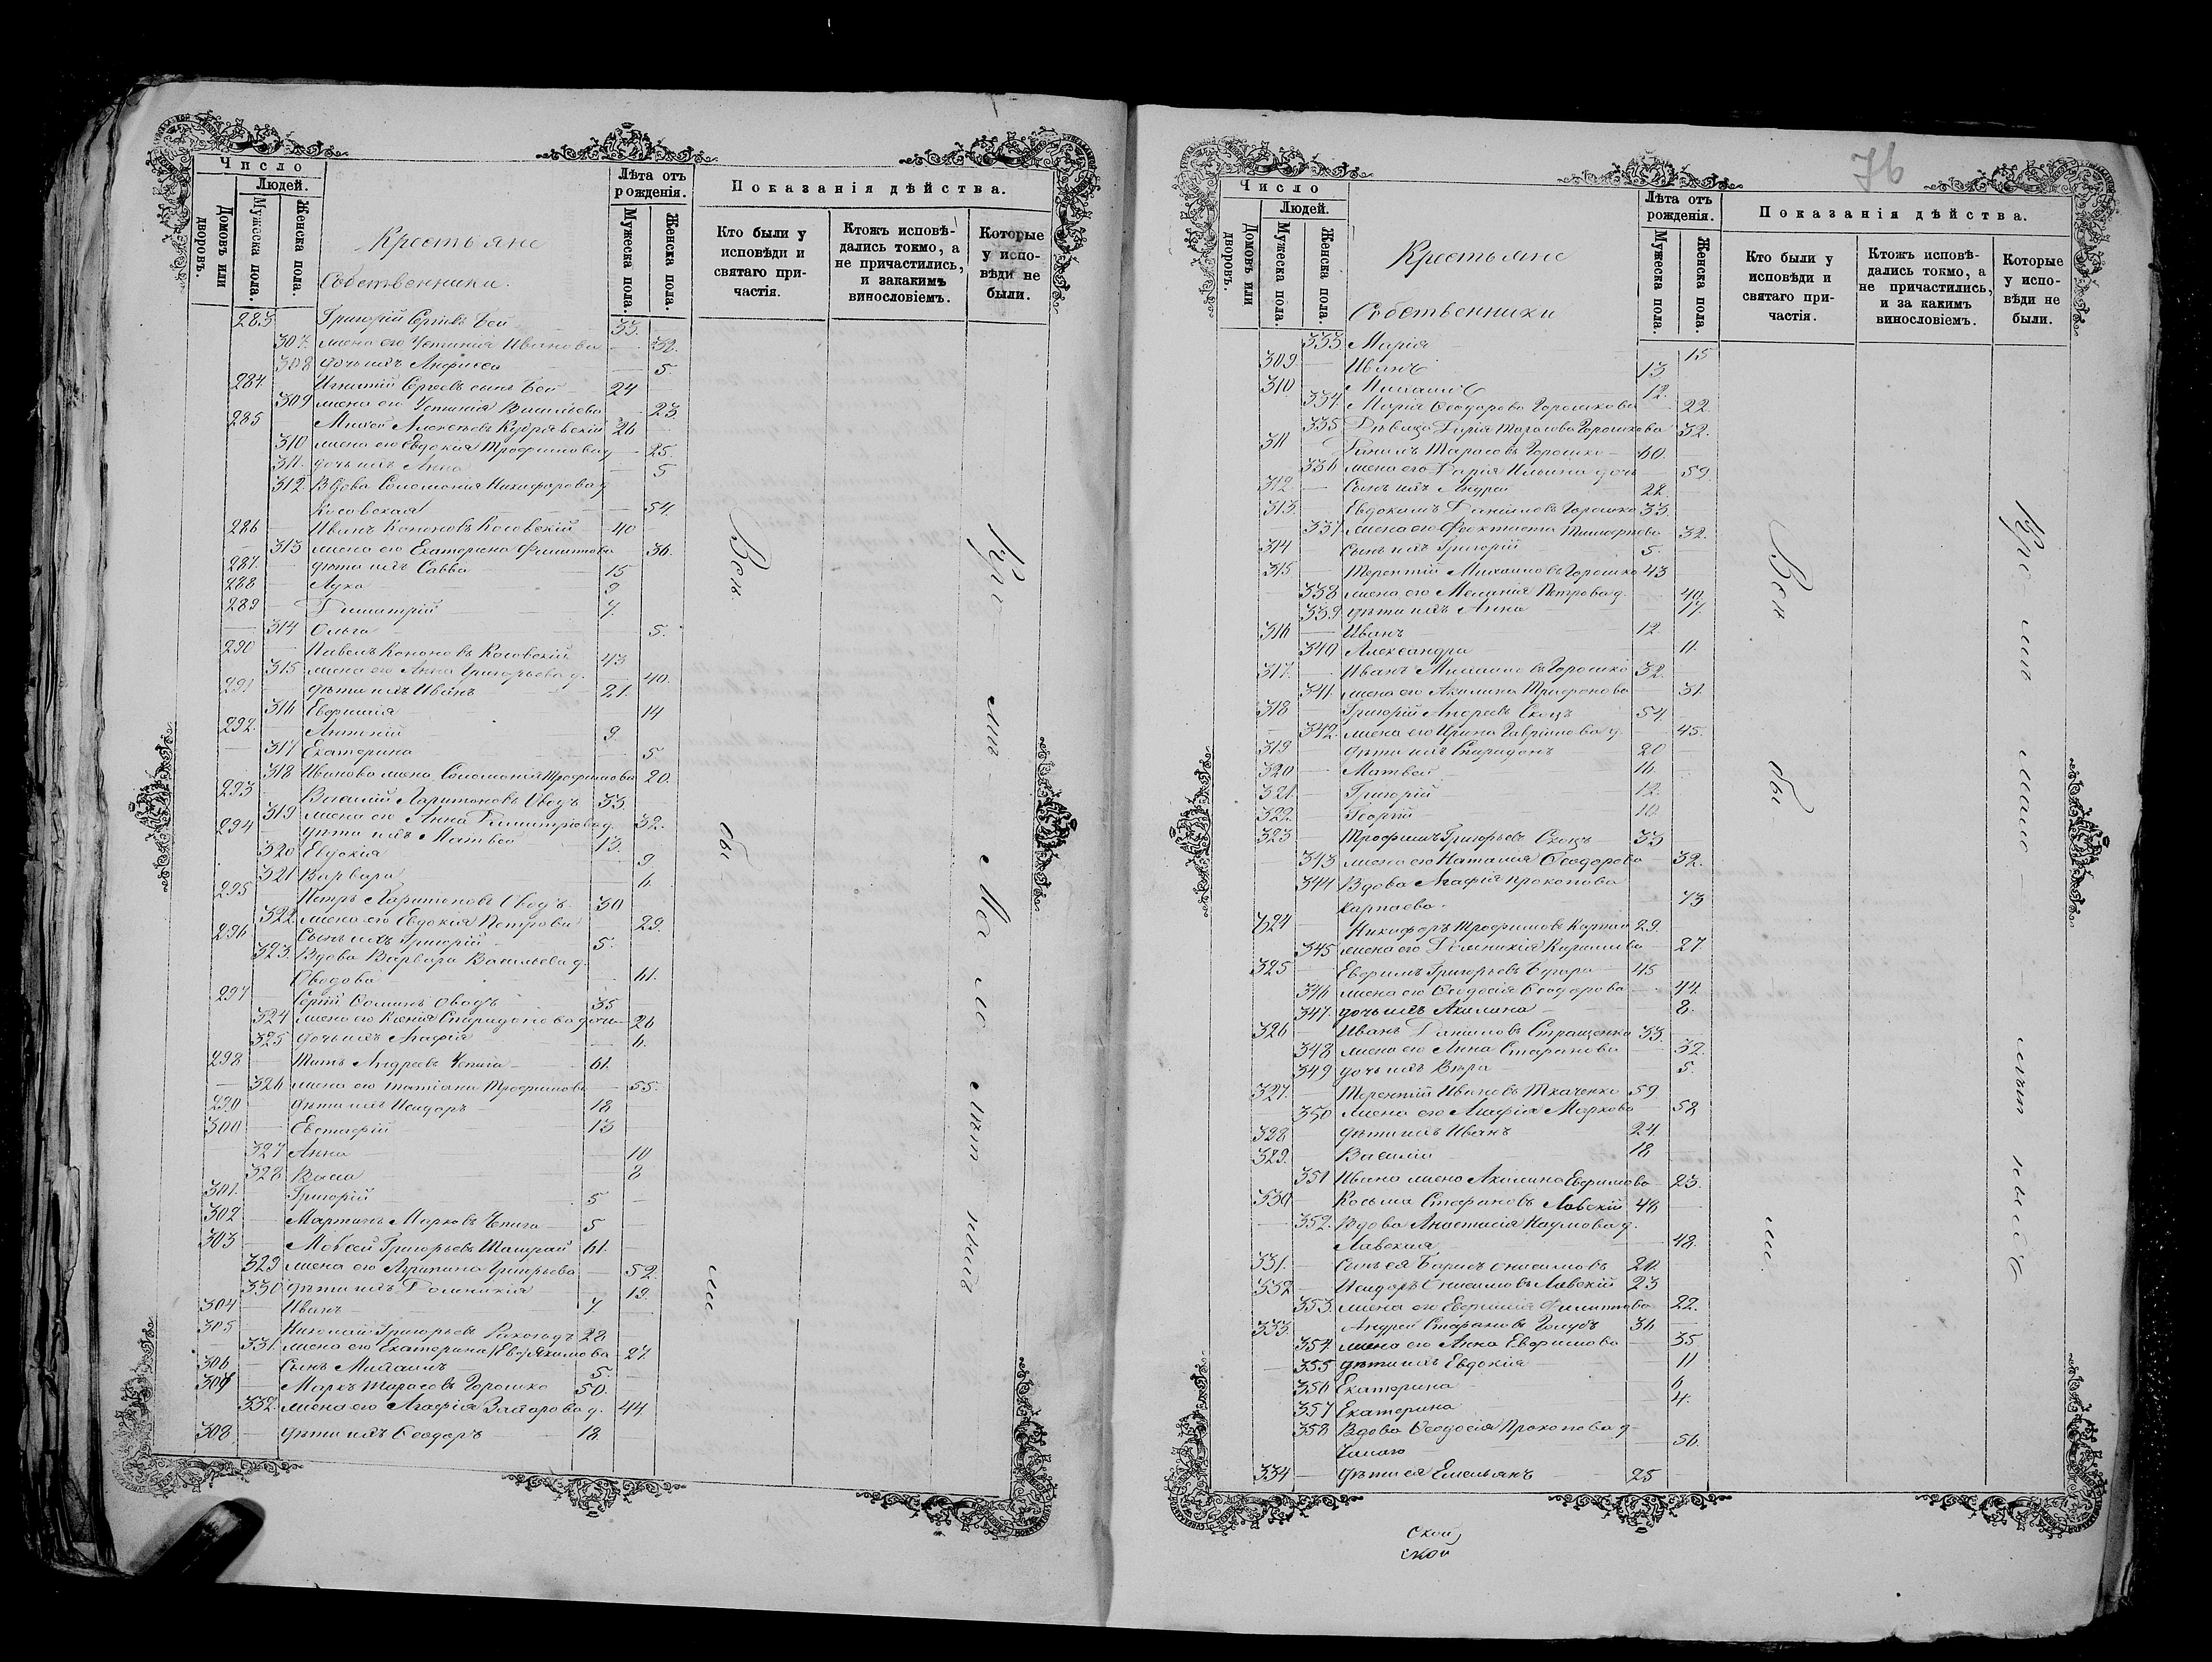 Число
Людей.
Домовъ или дворовъ.
Мужеска пола.
Женска пола.
Крестьяне
Собственники.
Лѣта отъ рожденія.
Мужеска пола.
Женска пола.
Показанія дѣйства.
Кто были у исповѣди и святаго причастія.
Ктожъ исповѣдались токмо, а не причастились, и закакимъ винословіемъ.
Которые у исповѣди не были.
283 Григорій 33.
307. жена его Устинія Иванова 32.
308 дочь ихъ Анфиса 5.
284. Игнатій Сергѣевъ сынъ 24
309 жена его Устинія Васильева 23.
285 Алексѣевъ 26
310 жена его Евдокія Трофимова д 25.
311. дочь ихъ Анна 5
312. Вдова Соломонія Никифорова д
Косовская 54.
286 Иванъ Кононовъ Косовскій 40
313 жена его Екатерина Филиппова 36.
287. дѣти ихъ Савва 15
288 Лука 9
289 Димитрій 7.
314 Ольга 5.
290 Павелъ Кононовъ Косовскій 43
315 жена его Анна Григорьева д. 40.
291 дѣти ихъ Иванъ 21.
316 Евфимія 14
292. Антоній 9
317 Екатерина 5
318 Иванова жена Соломонія Трофимова 20.
293 Василій Харитоновъ Оводъ 33.
319 жена его Анна Димитріева д. 32.
294 дѣти ихъ Матвей 13.
320 Евдокія 9
321 Варвара 6.
295 Петръ Харитоновъ Оводъ 30
322 жена его Евдокія Петрова 29.
296 Сынъ ихъ Григорій 5.
323. Вдова Варвара Васильева д.
Оводова 61.
297 Оводъ 35
324 жена его Ксенія Спиридонова дочь 26
325 дочь ихъ Агафія 6.
298 Андреевъ Чепига 61.
326 жена его Татіана Трофимова 55.
290 дѣти ихъ Исидоръ 18
300 Евстафій 13
327 Анна 10
328 Васса 8
301. Григорій 5
302 Мартинъ Марковъ Чепига 5
303 Моѵсей Григорьевъ 61.
329 жена его Григорьева 52.
330 дѣти ихъ Домникія 19.
304 Иванъ 7
305 Николай Григорьевъ 28
331. жена его Екатерина 27.
306 Сынъ Михаилъ 5.
307 Маркъ Тарасовъ Горошко 50.
332. жена его Агафія Захарова д. 44.
308 дѣти ихъ Ѳеодоръ 18.
Вси
бы
ли
Кро
мѣ
Ма
ло
лѣт
нихъ
76
Число
Людей.
Домовъ или дворовъ.
Мужеска пола.
Женска пола.
Крестьяне
Собственники
Лѣта отъ рожденія.
Мужеска пола.
Женска пола.
Показанія дѣйства.
Кто были у исповѣди и святаго причастія.
Ктожъ исповѣдались токмо, а не причастились, и за какимъ винословіемъ.
Которые у исповѣди не были.
333. Марія 15
309 Иванъ 13
310. Михаилъ 12.
334. Марія Ѳеодорова Горошкова 22.
335 Дѣвица Дарія Тарасова Горошкова 32.
311 Данилъ Тарасовъ Горошко 60.
336 жена его Дарія Ильина дочь 59.
312 Сынъ ихъ Андрей 22.
313. Евдокимъ Даниловъ Горошко 33.
337 жена его Феоктиста 32.
314 Сынъ ихъ Григорій 5.
315 Терентій Михаиловъ Горошко 43
338 жена его Меланія Петрова д. 40.
339 дѣти ихъ Анна 17.
316 Иванъ 12.
340 Александра 11.
317. Иванъ Михаиловъ Горошко 32.
341. жена его Акилина Трифонова 31.
318 Григорій Андреевъ 54.
342. жена его Ирина Гавріилова д. 45.
319 дѣти ихъ Спиридонъ 20
320 Матвей 16.
321. Григорій 12.
322. Георгій 10.
323 Трофимъ Григорьевъ 33
343 жена его Наталія Ѳеодорова 32.
344 Вдова Агафія Прокопова
Карпаева 73
324 Никифоръ Трофимовъ 29.
345 жена его Домникія Кирилова 27
325 Евфимъ Григорьевъ 45
346 жена его Ѳеодосія Ѳеодорова 44.
347. дочь ихъ Акилина 8.
326 Иванъ Даниловъ Стращенко 33.
348 жена его Анна Стефанова 32.
349 дочь ихъ Вѣра 5.
327. Терентій Ивановъ Ткаченко 59
350 жена его Агафія Маркова 58
328 дѣти ихъ Иванъ 24.
329. Василій 18
351 Ивана жена Акилина Евфимова 23.
330 Косьма Стефановъ Лавскій 48
352. Вдова Анастасія Наумова д.
Лавская 48.
331. Сынъ ея Борисъ Онисимовъ 20.
332 Исидоръ Онисимовъ Лавскій 23
353. жена его Евфимія Филиппова 22.
333. Андрей Стефановъ Голубъ 36
354. жена его Анна Евфимова 35
355 дѣти ихъ Евдокія 11
356 Екатерина 6
357 Екатерина 4.
358 Вдова Ѳеодосія Прокопова д.
56.
334 дѣти ея Емельянъ 25
Вси
бы
ли.
Кро
мѣ
мало
лѣт
ской
ской